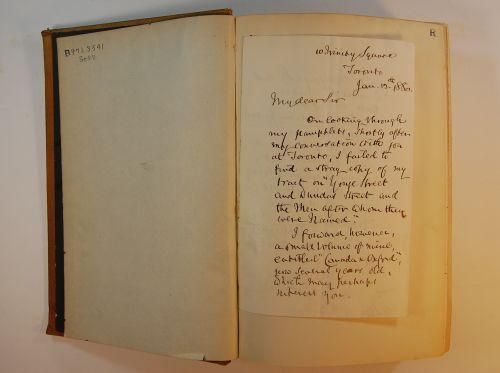 B971.3541
Sca7
R
10 Trinity Square
Toronto
Jan. 12th 1880.
My dear Sir
On looking through
my pamphlets, shortly after
my conversation with you
at Toronto, I failed to
find a stray copy of my
tract on "Yonge Street
and Dundas Street and
the Men after whom they
were Named."
I forward, however,
a small volume of mine,
entitled "Canada & Oxford",
now several years old,
which may perhaps
interest you.